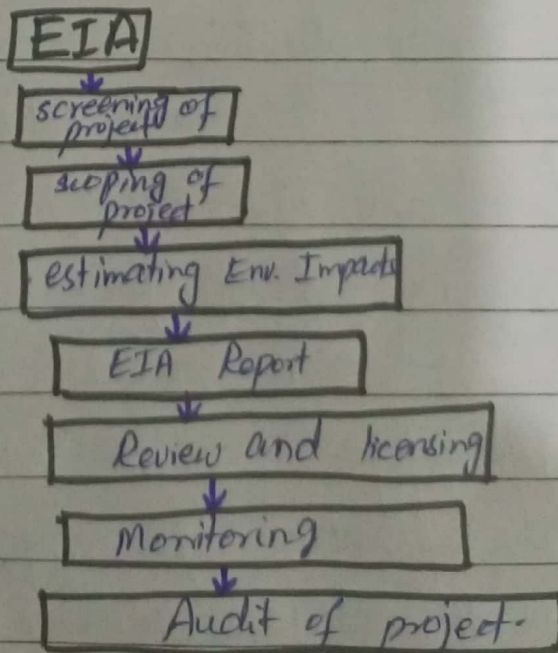 EIA
screening of
project
scoping of
project
estimating Env. Impacts
EIA Report
Review and licensing
Monitoring
Audit of project.